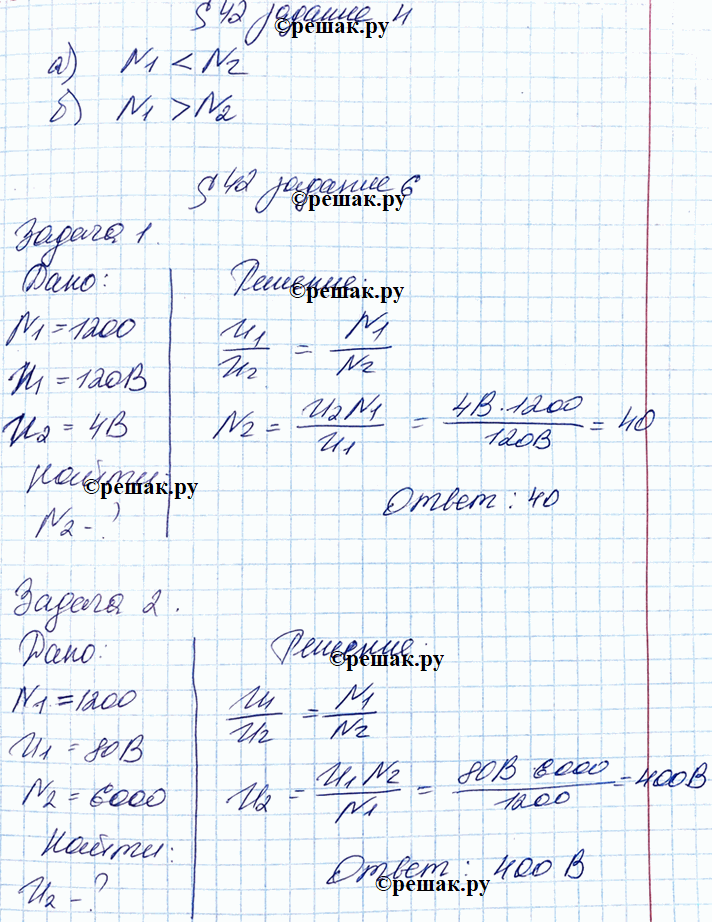 § 42 задание 4
©решак.ру
а) N1 < N2
б) N1 > N2
§ 42 задание 6
©решак.ру
Задача 1.
Дано:
N1 = 1200
U1 = 120В
U2 = 4В
Найти:
©решак.ру
N2 - ?
Решение:
©решак.ру
U1/U2 = N1/N2
N2 = U2N1/U1 = 4В·1200/120В = 40
Ответ: 40
Задача 2.
Дано:
N1 = 1200
U1 = 80В
N2 = 6000
Найти:
U2 - ?
Решение:
©решак.ру
U1/U2 = N1/N2
U2 = U1N2/N1 = 80В 6000/1200 = 400В
Ответ: 400 В
©решак.ру